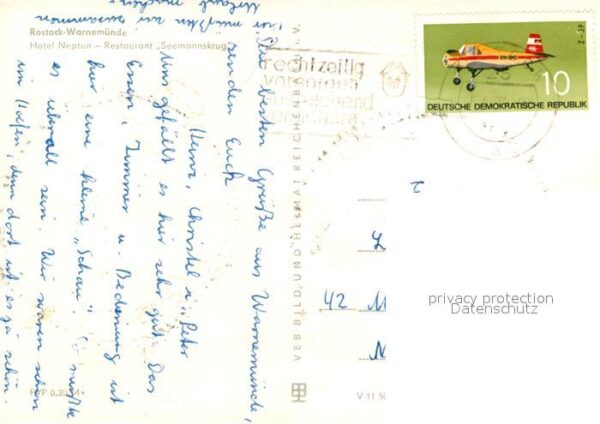 Rostock-Warnemünde
Hotel Neptun — Restaurant „Seemannskrug"
Die besten Grüße aus Warnemünde,
senden Euch
Heinz, Christel u. Peter
Uns gefällt es hier sehr gut. Das
Essen, Zimmer u. Bedienung ist
hier eine kleine „Schau". So müßte
es überall sein. Wir waren schon
im Hafen, denn dort ist es ja schön.
Wir müßten zusammen
Urlaub machen!
EVP 0,20 M
VEB BILD UND HEIMAT REICHENBACH i. V.
V 11 50
rechtzeitig
vorsorgen
10
DEUTSCHE DEMOKRATISCHE REPUBLIK
Z-37
42 M
privacy protection
Datenschutz